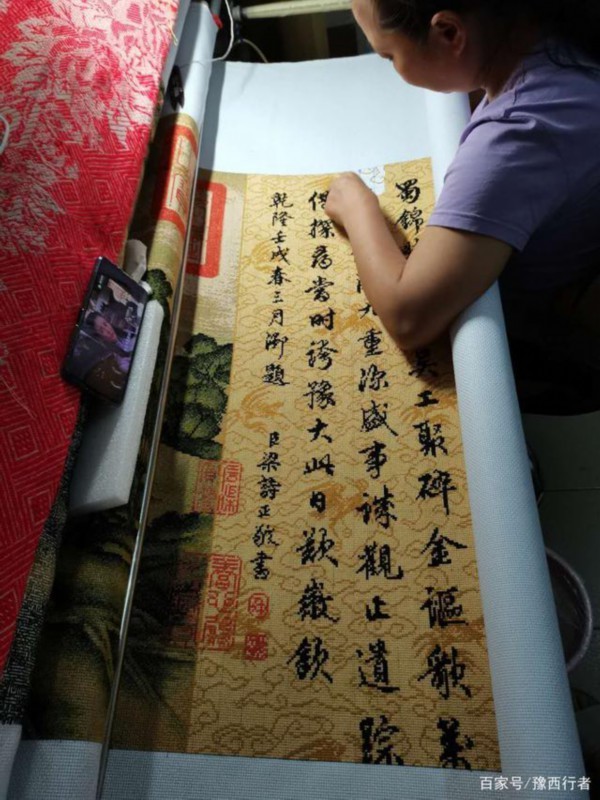 蜀錦吳工聚碎金謳歌萬
九重深盛事誠觀止遺踪
借探尋當時誇豫大此日歎徽欽
乾隆壬戌春三月御題 臣梁詩正敬書
百家号/豫西行者